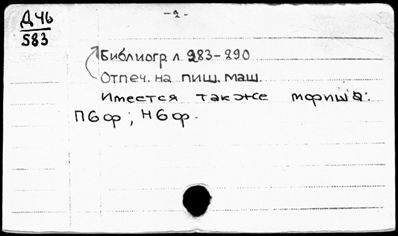 Д46
583
- 2 -
Библиогр л. 283-290
Отпеч. на пиш. маш.
Имеется также мфиша:
ПБФ; НБФ.